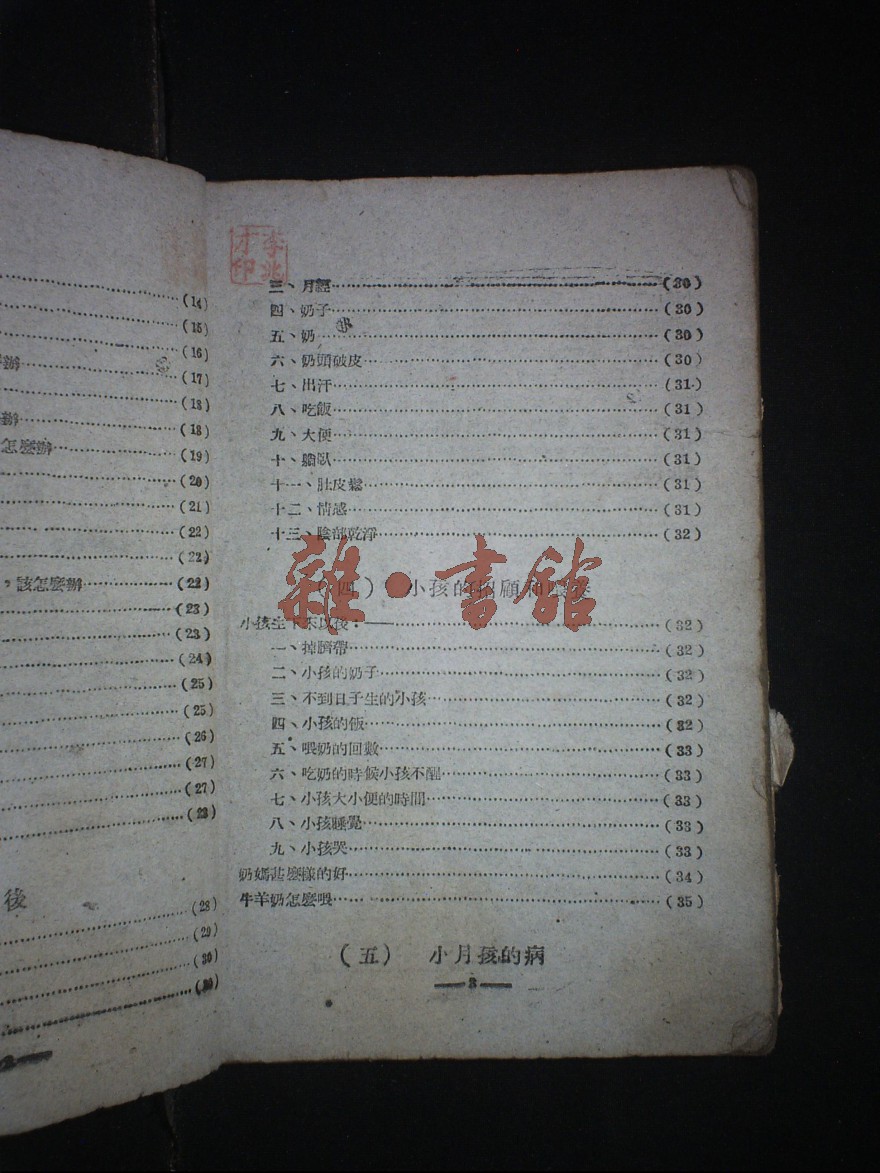 (14)
(15)
(16)
辦 (17)
(18)
辦 (18)
怎麼辦 (19)
(20)
(21)
(22)
(22)
，該怎麼辦 (22)
(23)
(23)
(24)
(25)
(25)
(26)
(27)
(27)
(28)
後
(28)
(29)
(30)
(30)
李兆才印
三、月經 (30)
四、奶子 (30)
五、奶 (30)
六、奶頭破皮 (30)
七、出汗 (31)
八、吃飯 (31)
九、大便 (31)
十、躺臥 (31)
十一、肚皮鬆 (31)
十二、情感 (31)
十三、陰部乾淨 (32)
(四) 小孩的招顧和
雜·書館
小孩生下來以後：—— (32)
一、掉臍帶 (32)
二、小孩的奶子 (32)
三、不到日子生的小孩 (32)
四、小孩的飯 (32)
五、喂奶的回數 (33)
六、吃奶的時候小孩不醒 (33)
七、小孩大小便的時間 (33)
八、小孩睡覺 (33)
九、小孩哭 (33)
奶媽甚麼樣的好 (34)
牛羊奶怎麼喂 (35)
(五) 小月孩的病
3